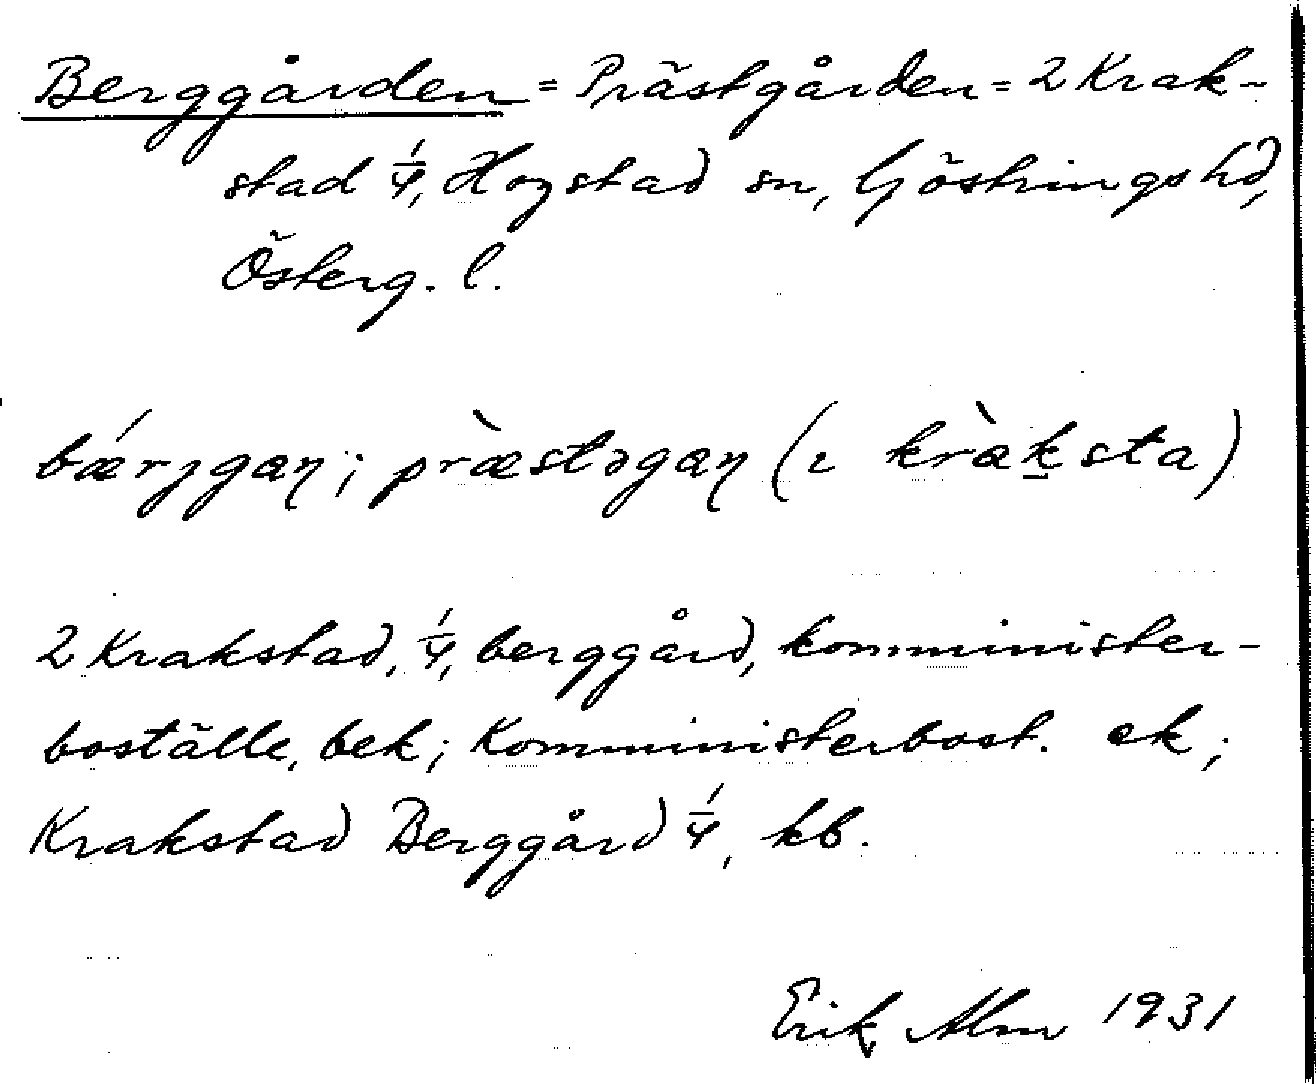 Berggården = Prästgården = 2 Krak-
stad 1/4, Hogstad sn, Göstrings hd,
Österg. l.
bǽrjgaɳ; præ̀stəgaɳ (ı kràksta)
2 Krakstad, 1/4, berggård, komminister-
boställe, bek; Komministerbost. ek;
Krakstad Berggård 1/4, kb.
Erik Alm 1931